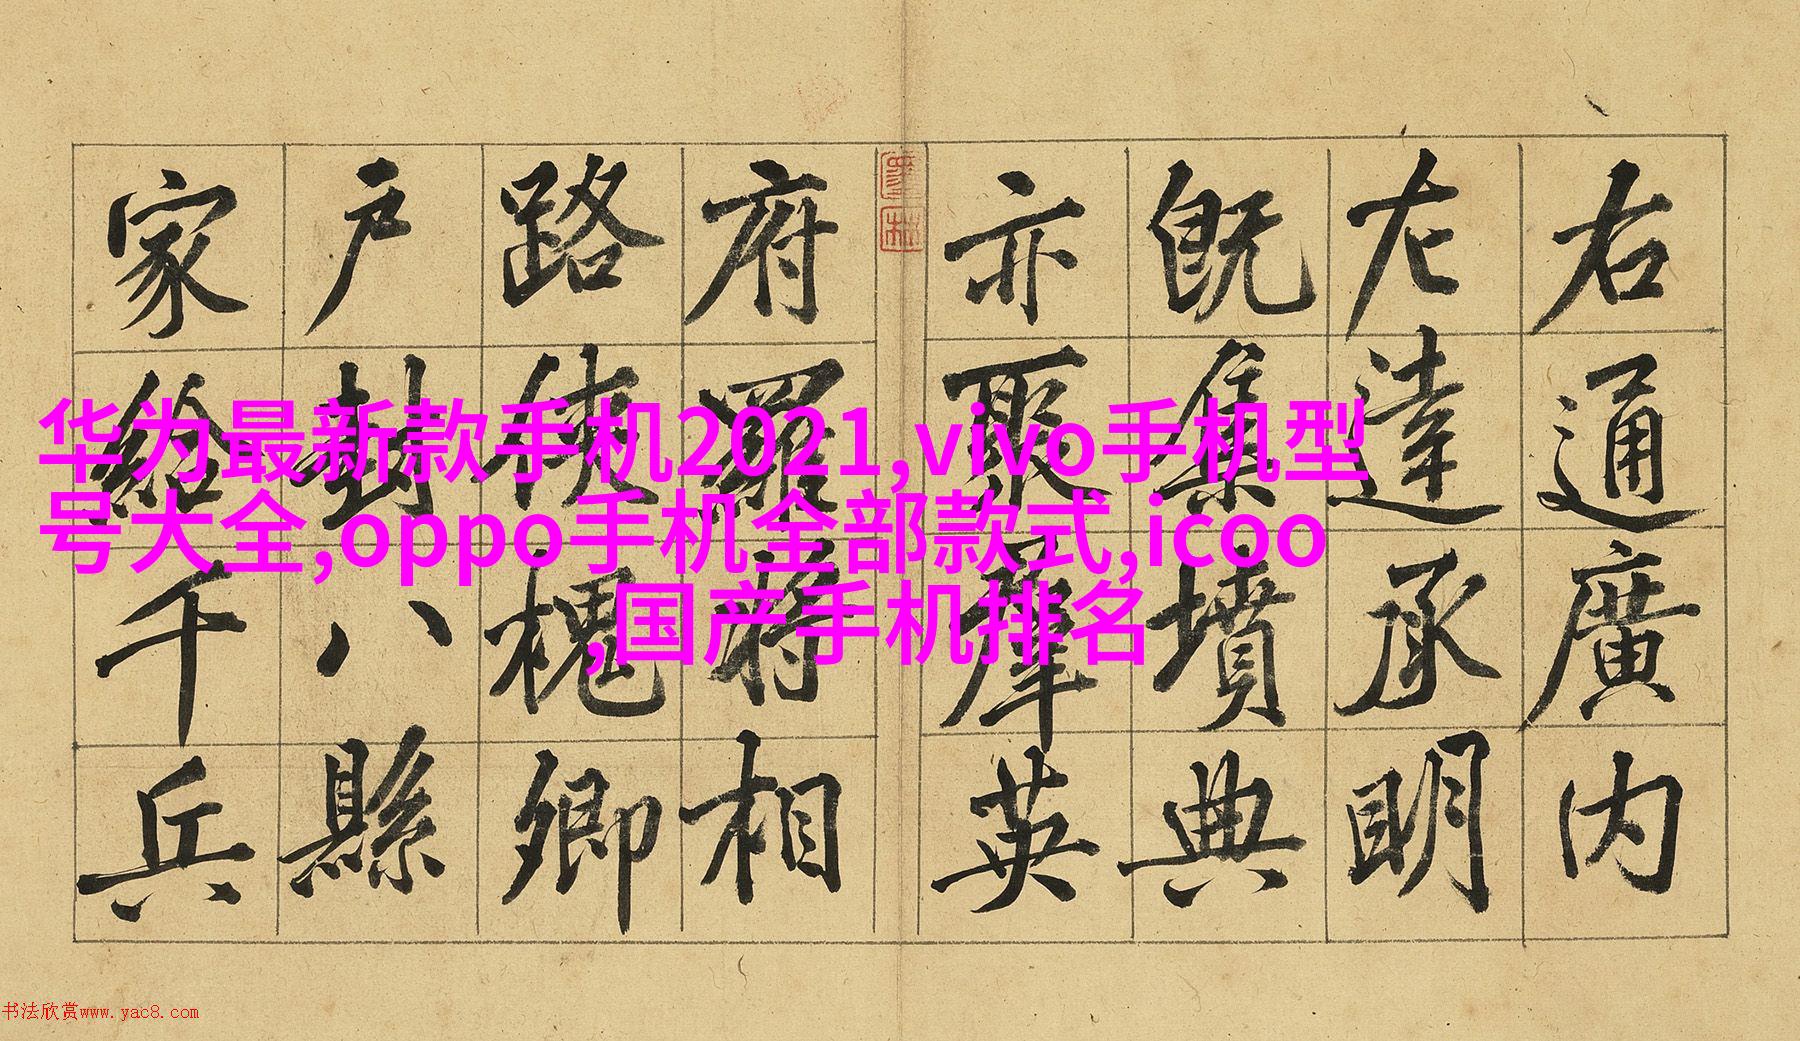 右通廣內
左達承明
既集墳典
亦聚羣英
府羅將相
路俠槐卿
戶封八縣
家給千兵
华为最新款手机2021,vivo手机型
号大全,oppo手机全部款式,icoo
,国产手机排名
书法欣赏www.yac8.com